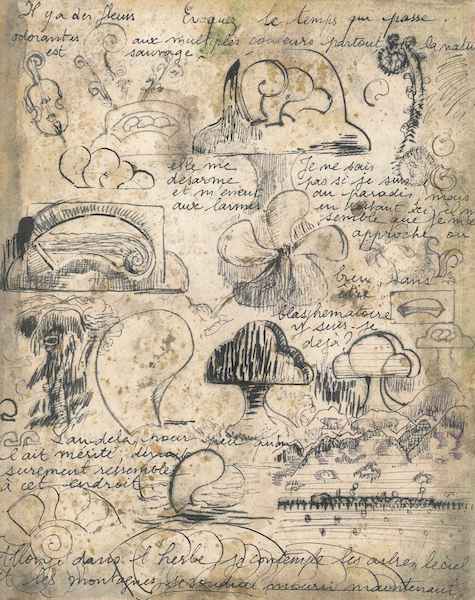 Il y a des fleurs Evoquer le temps qui passe.
odorantes, aux multiples couleurs partout, la nature
est sauvage.
elle me
désarme
et m'émeut
aux larmes
Je ne sais
pas si je suis
du paradis, mais
en habitant ici
semble que je m'
approche, ou
bien, sans
être
blasphématoire
y suis-je
déjà?
L'au delà, pour peu qu'on
l'ait mérité, devrait
sûrement ressembler
à cet endroit
dans l'herbe je contemple les arbres le ciel
et les montagnes, je voudrais mourir maintenant,